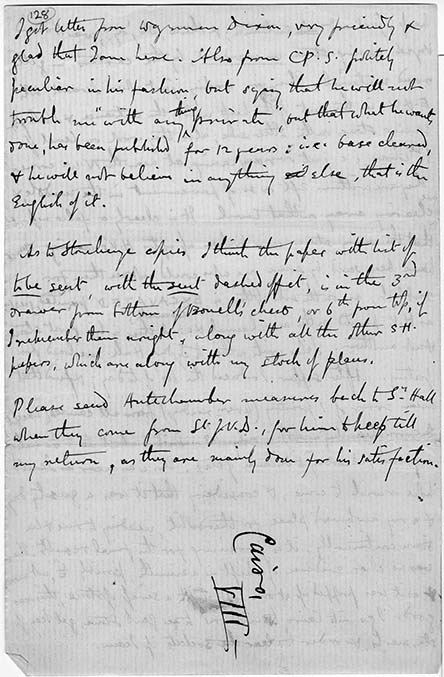 128
I got letter from Wynman Dixon, very friendly &
glad that I am here. Also from C.P.S. politely
peculiar in his fashion, but saying that he will not
trouble me "with any thing private", but that what he wants
done, has been published for 12 years: i.e. base cleared,
& he will not believe in anything else, that is the
English of it.
As to Stonehenge copies I think the paper with list of
to be sent, with the sent dashed off it, is in the 3rd
drawer from bottom of Bonelli's chest, or 6th from top, if
I remember them aright, along with all the other S.H.
papers, which are along with my stock of plans.
Please send Antechamber measures back to Dr Hall
when they come from St J.V.D., for him to keep till
my return, as they are mainly done for his satisfaction.
Cairo
VIII